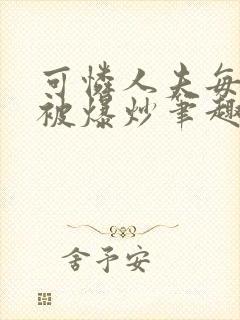 可怜人夫每
被爆炒笔趣
舍予安